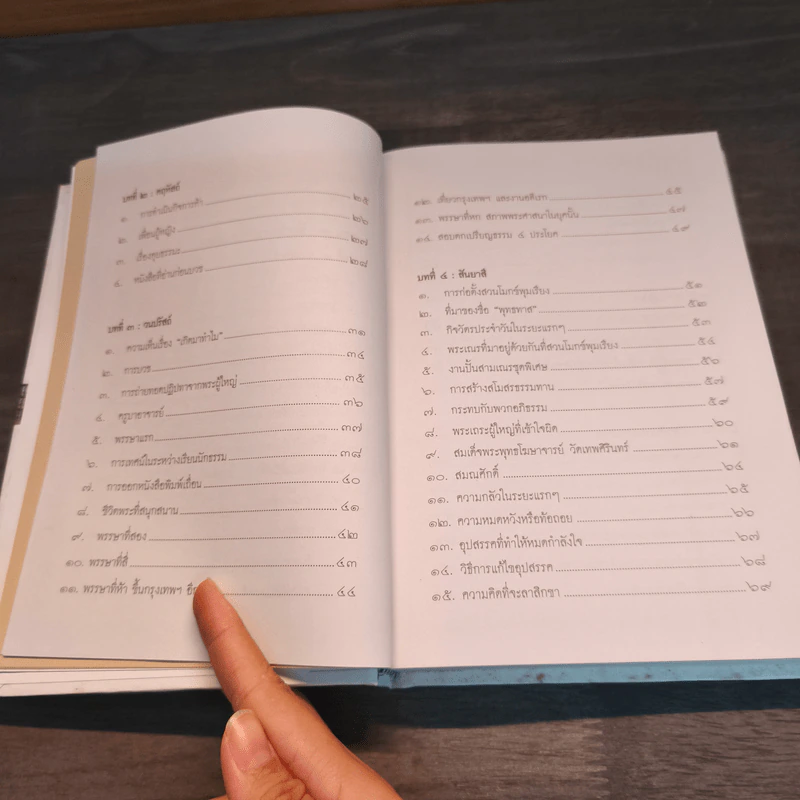 บทที่ ๒ : คฤหัสถ์
๑. การดำเนินกิจการค้า ๒๕
๒. เพื่อนผู้หญิง ๒๖
๓. เรื่องชุบธรรมะ ๒๗
๔. หนังสือที่อ่านก่อนบวช ๒๘
บทที่ ๓ : วนปรัสถ์
๑. ความเห็นเรื่อง "เกิดมาทำไม" ๓๑
๒. การบวช ๓๔
๓. การถ่ายทอดปฏิปทาจากพระผู้ใหญ่ ๓๕
๔. ครูบาอาจารย์ ๓๖
๕. พรรษาแรก ๓๗
๖. การเทศน์ในระหว่างเรียนนักธรรม ๓๘
๗. การออกหนังสือพิมพ์เถื่อน ๔๐
๘. ชีวิตพระที่สนุกสนาน ๔๑
๙. พรรษาที่สอง ๔๒
๑๐. พรรษาที่สี่ ๔๓
๑๑. พรรษาที่ห้า ขึ้นกรุงเทพฯ ๔๔
๑๒. เที่ยวกรุงเทพฯ และงานอดิเรก ๔๕
๑๓. พรรษาที่หก สภาพพระศาสนาในยุคนั้น ๔๗
๑๔. สอบตกเปรียญธรรม ๔ ประโยค ๔๙
บทที่ ๔ : สันยาสี
๑. การก่อตั้งสวนโมกข์พุมเรียง ๕๑
๒. ที่มาของชื่อ "พุทธทาส" ๕๒
๓. กิจวัตรประจำวันในระยะแรกๆ ๕๓
๔. พระเณรที่มาอยู่ด้วยกันที่สวนโมกข์พุมเรียง ๕๔
๕. งานปั้นสามเณรชุดพิเศษ ๕๖
๖. การสร้างสโมสรธรรมทาน ๕๗
๗. กระทบกับพวกอภิธรรม ๕๙
๘. พระเถระผู้ใหญ่ที่เข้าใจผิด ๖๐
๙. สมเด็จพระพุทธโฆษาจารย์ วัดเทพศิรินทร์ ๖๑
๑๐. สมณศักดิ์ ๖๔
๑๑. ความกลัวในระยะแรกๆ ๖๕
๑๒. ความหมดหวังหรือท้อถอย ๖๖
๑๓. อุปสรรคที่ทำให้หมดกำลังใจ ๖๗
๑๔. วิธีการแก้ไขอุปสรรค ๖๘
๑๕. ความคิดที่จะลาสิกขา ๖๙